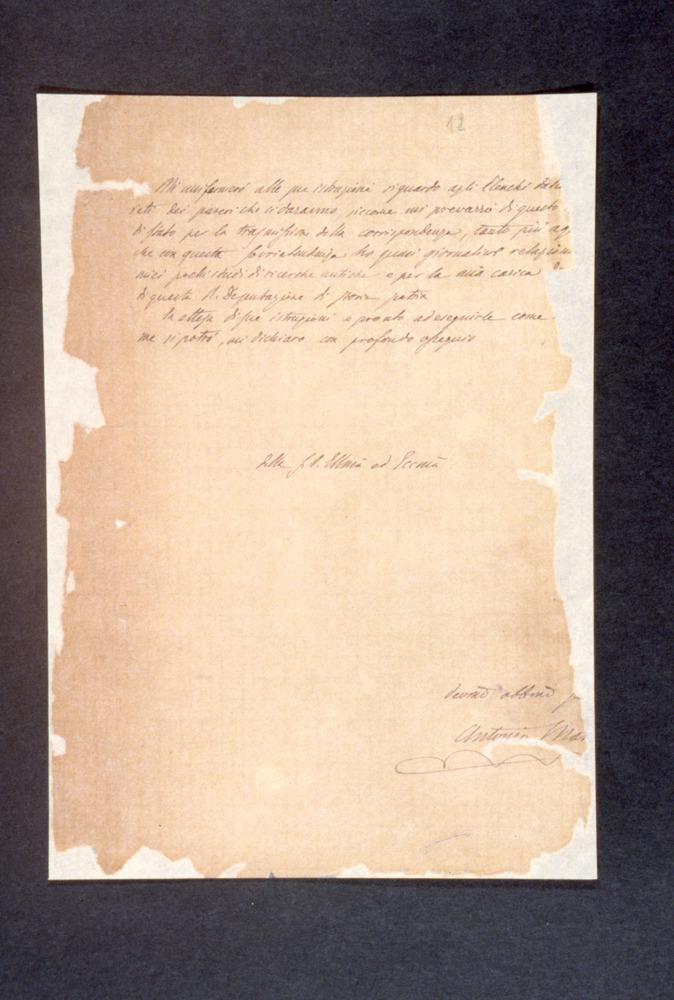 12
Mi uniformerò alle sue istruzioni riguardo agli Elenchi
dei pareri che ci daranno, siccome mi prevarrò di questo
di Stato per la trasmissione della corrispondenza, tanto più
che con questa ho quasi giornaliere relazioni
miei pochi studi di ricerche antiche e per la mia carica
di questa R. Deputazione di storia patria
In attesa di sue istruzioni e pronto ad eseguirle come
me si potrà, mi dichiaro con profondo ossequio
Della S. V. Illma ed Eccma
Devmo obbmo
Antonio